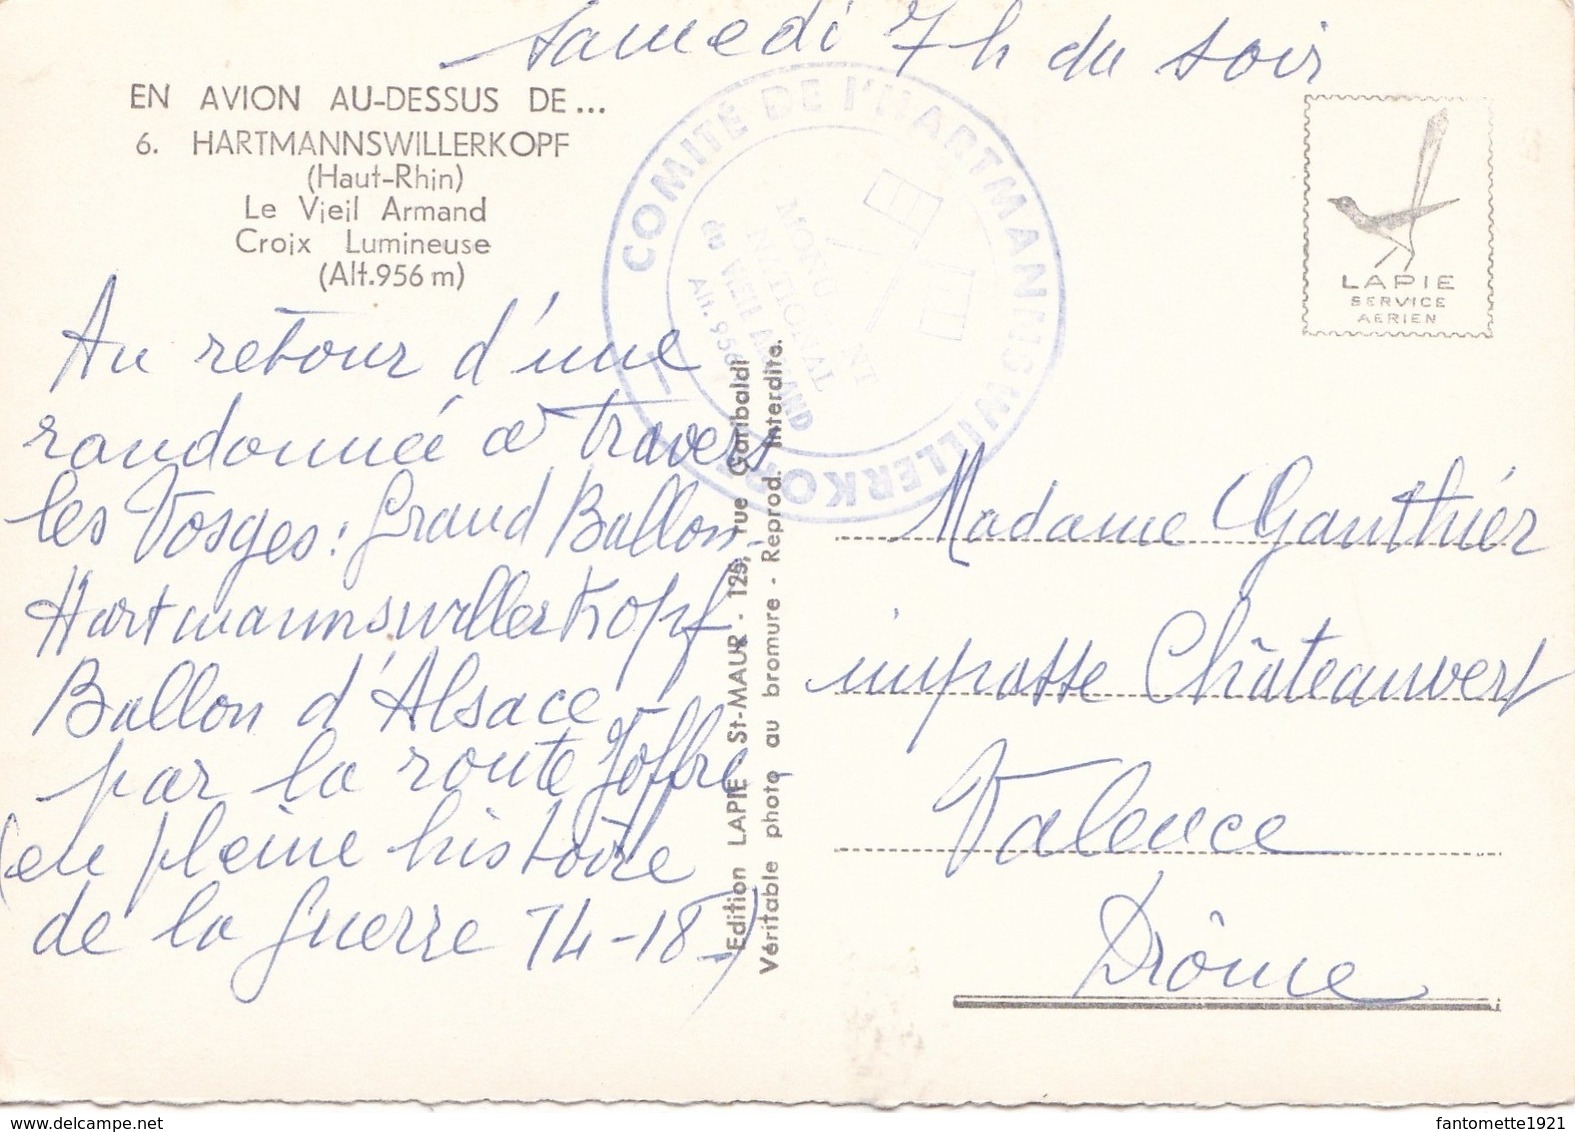 Samedi 7h du soir
EN AVION AU-DESSUS DE...
6. HARTMANNSWILLERKOPF
(Haut-Rhin)
Le Vieil Armand
Croix Lumineuse
(Alt.956 m)
Au retour d'une
randonnée à travers
les Vosges : Grand Ballon -
Hartmannswillerkopf
Ballon d'Alsace -
par la route Joffre -
(en pleine histoire
de la guerre 14-18)
Edition LAPIE St-MAUR - 125, rue Garibaldi
Véritable photo au bromure - Reprod. interdite.
COMITÉ DE l'HARTMANNSWILLERKOPF
MONUMENT
NATIONAL
du VIEIL ARMAND
Alt. 956
LAPIE
SERVICE
AERIEN
Madame Gauthier
impasse Châteauvert
Valence
Drôme
fantomette1921